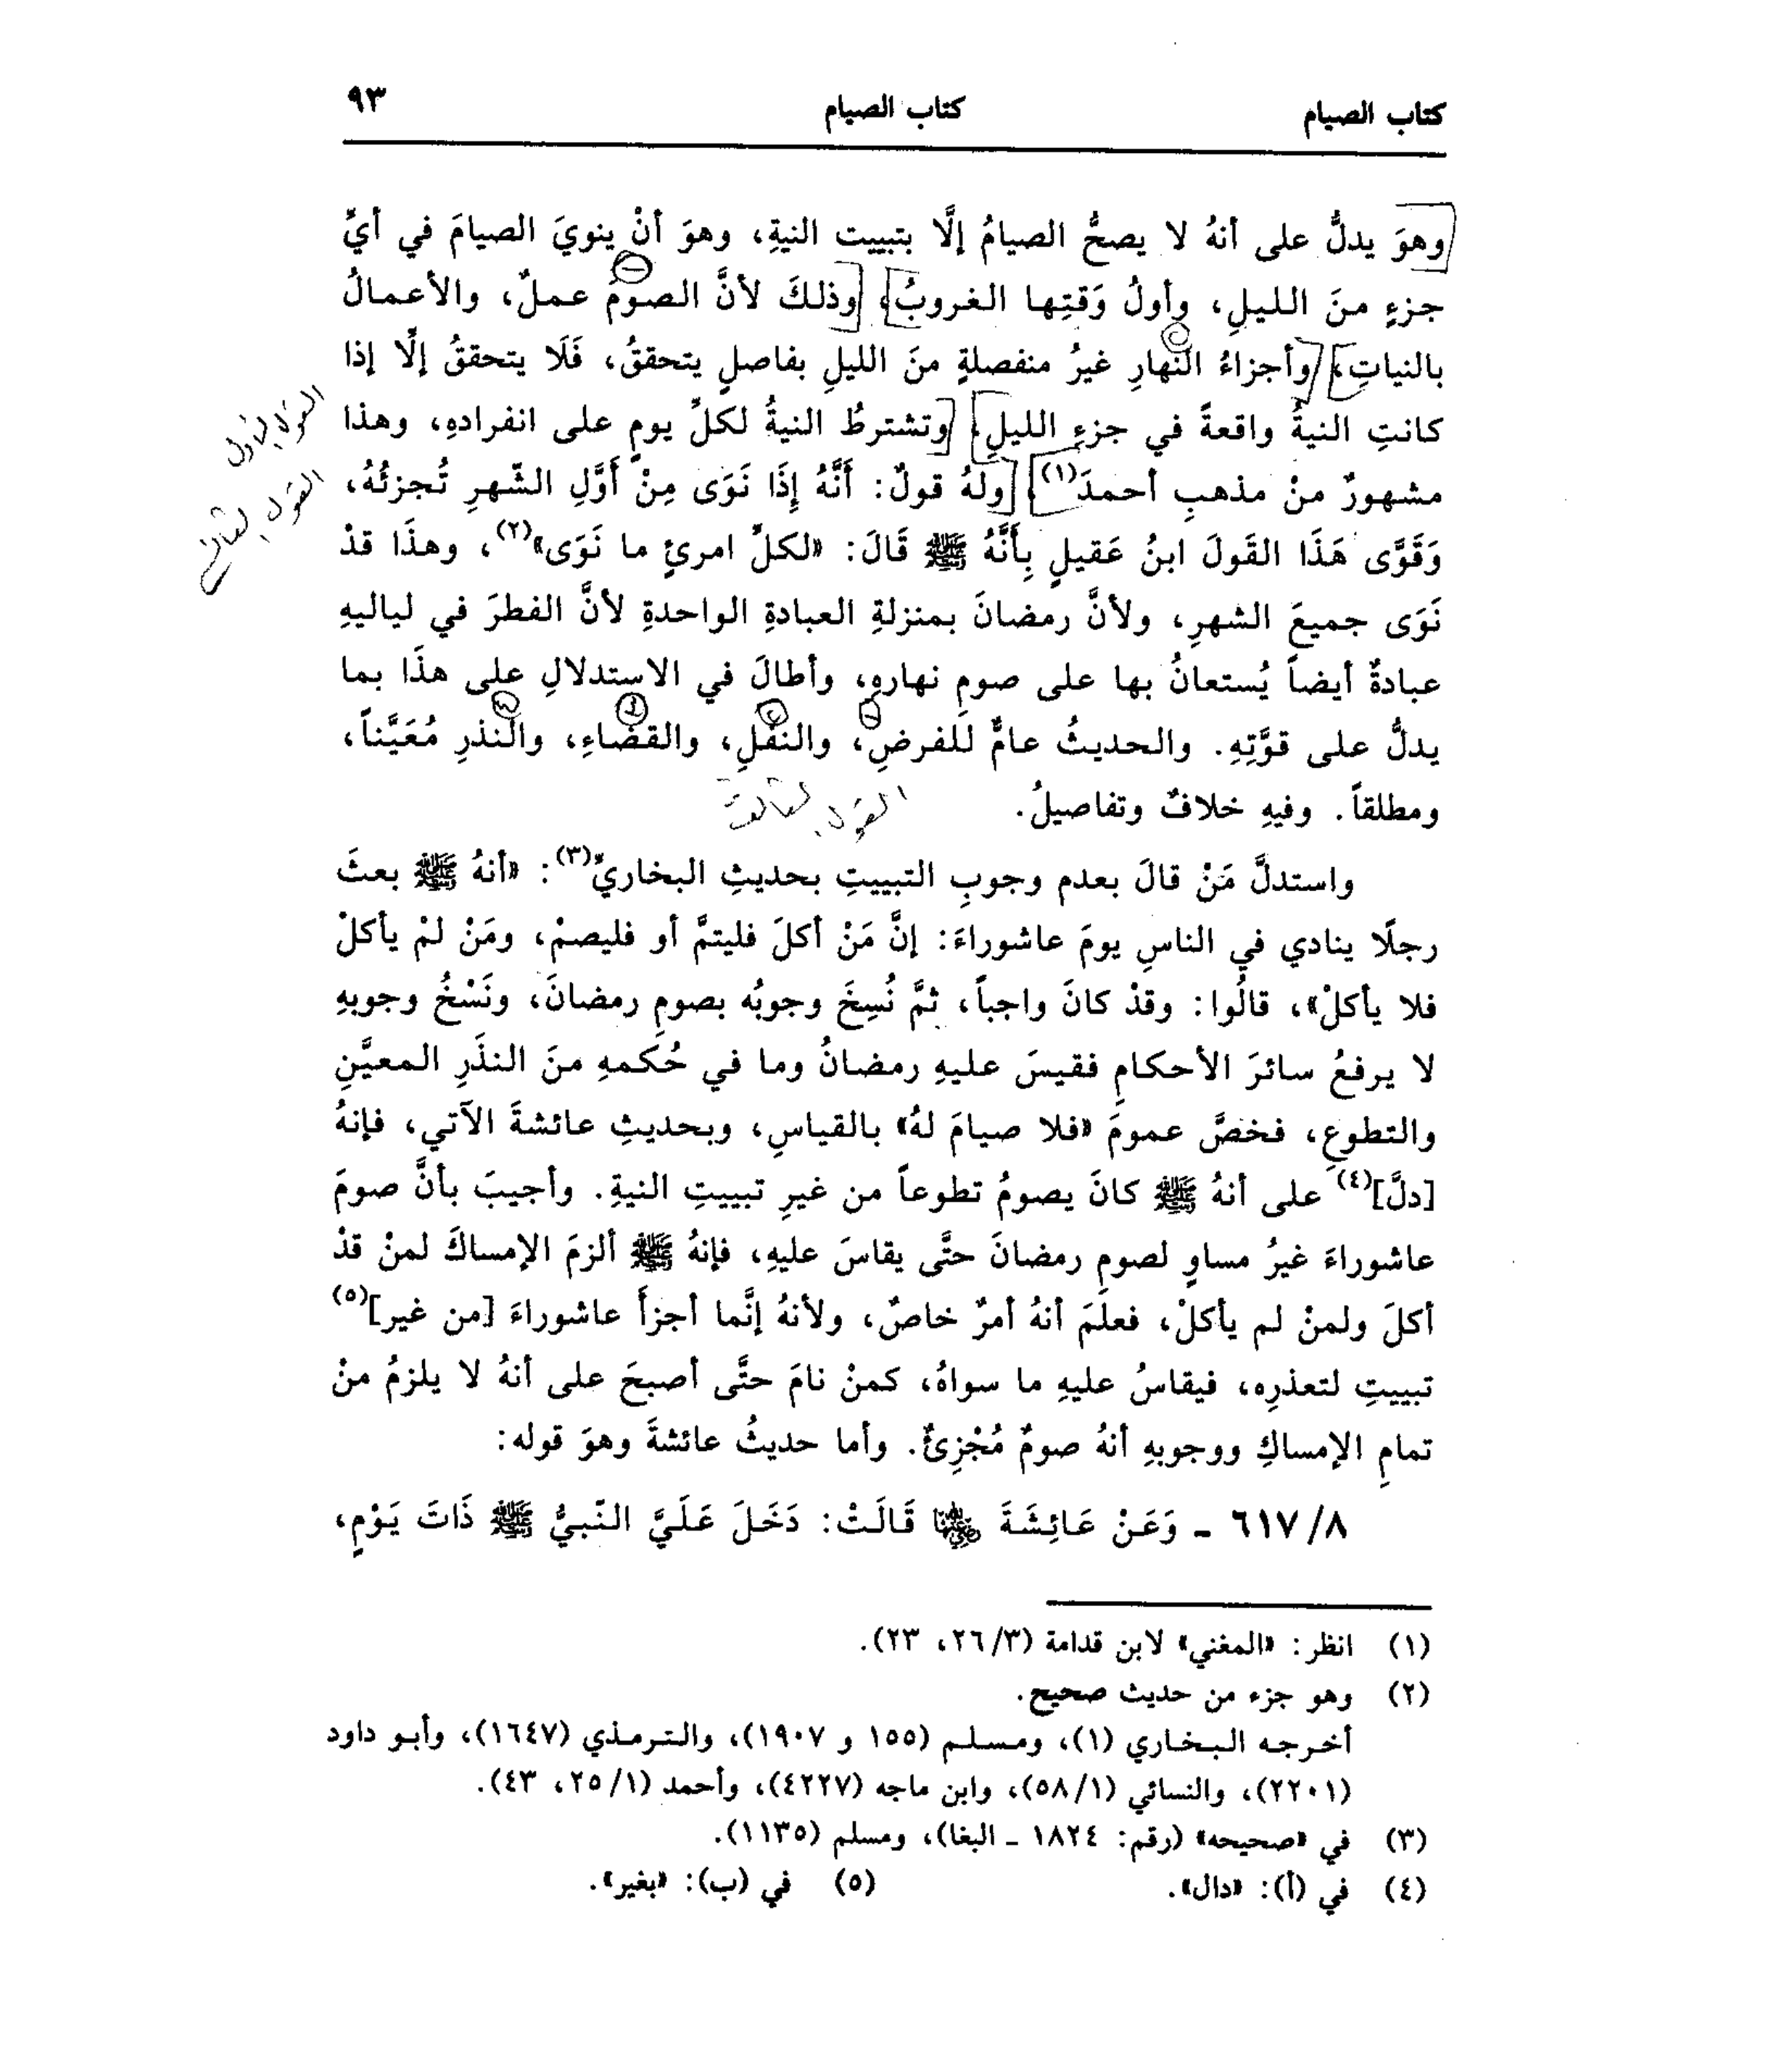 كتاب الصيام كتاب الصيام ٩٣
وهوَ يدلُّ على أنهُ لا يصحُّ الصيامُ إلَّا بتبييت النيةِ، وهوَ أنْ ينويَ الصيامَ في أيِّ
جزءٍ منَ الليلِ، وأولُ وَقتِها الغروبُ، وذلكَ لأنَّ الصومَ عملٌ، والأعمالُ
بالنياتِ، وأجزاءُ النهارِ غيرُ منفصلةٍ منَ الليلِ بفاصلٍ يتحققُ، فَلَا يتحققُ إلَّا إذا
كانتِ النيةُ واقعةً في جزءِ الليلِ، وتشترطُ النيةُ لكلِّ يومٍ على انفرادهِ، وهذا
القول الأول
مشهورٌ منْ مذهبِ أحمدَ(١)، ولهُ قولٌ: أَنَّهُ إذَا نَوَى مِنْ أَوَّلِ الشّهرِ تُجزئُهُ،
القول الثاني
وَقَوَّى هَذَا القَولَ ابنُ عَقيلٍ بِأَنَّهُ ﷺ قَالَ: «لكلِّ امرئٍ ما نَوَى»(٢)، وهذَا قدْ
نَوَى جميعَ الشهرِ، ولأنَّ رمضانَ بمنزلةِ العبادةِ الواحدةِ لأنَّ الفطرَ في لياليهِ
عبادةٌ أيضاً يُستعانُ بها على صومِ نهارهِ، وأطالَ في الاستدلالِ على هذَا بما
يدلُّ على قوَّتِهِ. والحديثُ عامٌّ للفرضِ، والنفْلِ، والقضَاءِ، والنذرِ مُعَيَّناً،
ومطلقاً. وفيهِ خلافٌ وتفاصيلُ.
القول الثالث
واستدلَّ مَنْ قالَ بعدم وجوبِ التبييتِ بحديثِ البخاريِّ(٣): «أنهُ ﷺ بعثَ
رجلًا ينادي في الناسِ يومَ عاشوراءَ: إنَّ مَنْ أكلَ فليتمَّ أو فليصمْ، ومَنْ لمْ يأكلْ
فلا يأكلْ»، قالُوا: وقدْ كانَ واجباً، ثمَّ نُسِخَ وجوبُه بصومِ رمضانَ، ونَسْخُ وجوبهِ
لا يرفعُ سائرَ الأحكامِ فقيسَ عليهِ رمضانُ وما في حُكمهِ منَ النذَرِ المعيَّنِ
والتطوعِ، فخصَّ عمومَ «فلا صيامَ لهُ» بالقياسِ، وبحديثِ عائشةَ الآتي، فإنهُ
[دلَّ](٤) على أنهُ ﷺ كانَ يصومُ تطوعاً من غيرِ تبييتِ النيةِ. وأجيبَ بأنَّ صومَ
عاشوراءَ غيرُ مساوٍ لصومِ رمضانَ حتَّى يقاسَ عليهِ، فإنهُ ﷺ ألزمَ الإمساكَ لمنْ قدْ
أكلَ ولمنْ لم يأكلْ، فعلمَ أنهُ أمرٌ خاصٌ، ولأنهُ إنَّما أجزأَ عاشوراءَ [من غير](٥)
تبييتِ لتعذرِه، فيقاسُ عليهِ ما سواهُ، كمنْ نامَ حتَّى أصبحَ على أنهُ لا يلزمُ منْ
تمامِ الإمساكِ ووجوبهِ أنهُ صومٌ مُجْزِئٌ. وأما حديثُ عائشةَ وهوَ قوله:
٦١٧/٨ ـ وَعَنْ عَائِشَةَ رضي الله عنها قَالَتْ: دَخَلَ عَلَيَّ النّبيُّ ﷺ ذَاتَ يَوْمٍ،
(١) انظر: «المغني» لابن قدامة (٢٦/٣، ٢٣).
(٢) وهو جزء من حديث صحيح.
أخرجه البخاري (١)، ومسلم (١٥٥ و ١٩٠٧)، والترمذي (١٦٤٧)، وأبو داود
(٢٢٠١)، والنسائي (٥٨/١)، وابن ماجه (٤٢٢٧)، وأحمد (٢٥/١، ٤٣).
(٣) في «صحيحه» (رقم: ١٨٢٤ ـ البغا)، ومسلم (١١٣٥).
(٤) في (أ): «دال». (٥) في (ب): «بغير».